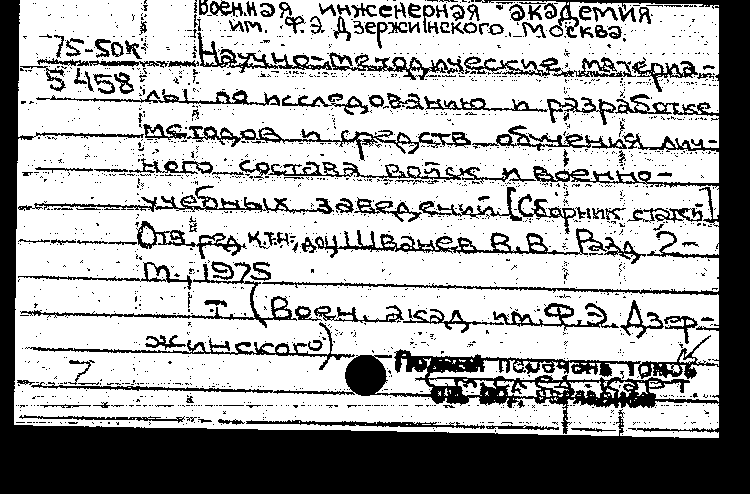 Военная инженерная академия
им. Ф.Э Дзержинского. Москва.
75-50к
5458
Научно-методические материа-
лы по исследованию и разработке
методов и средств обучения лич-
ного состава войск и военно-
учебных заведений. [Сборник статей].
Отв. ред. к.т.н., доц Шванев В.В. Разд 2-
М., 1975
т. (Воен. акад. им. Ф.Э. Дзер-
жинского).
Полный перечень томов
см. след. карт.